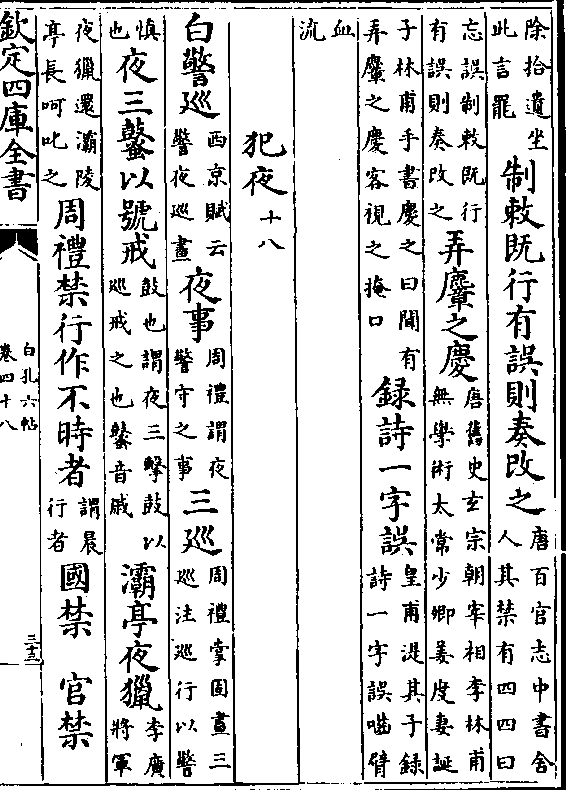 除拾遺坐此言罷制敕既行有誤則奏改之唐百官志中書舍人其禁有四四曰
忘誤制敕既行有誤則奏改之弄麞之慶唐舊史玄宗朝宰相李林甫無學術太常少卿姜度妻誕
子林甫手書慶之曰聞有弄麞之慶客視之掩口録詩一字誤皇甫湜其子録詩一字誤囓臂
血流
犯夜十八
白警巡西京賦云警夜巡晝夜事周禮謂夜警守之事三巡周禮掌固晝三巡注巡行以警
慎也夜三鼜以號戒鼓也謂夜三擊鼓以巡戒之也鼜音戚灞亭夜獵李廣將軍
夜獵還灞陵亭長呵叱之周禮禁行作不時者謂晨行者國禁 官禁
欽定四庫全書 白孔六帖卷四十八 三十三